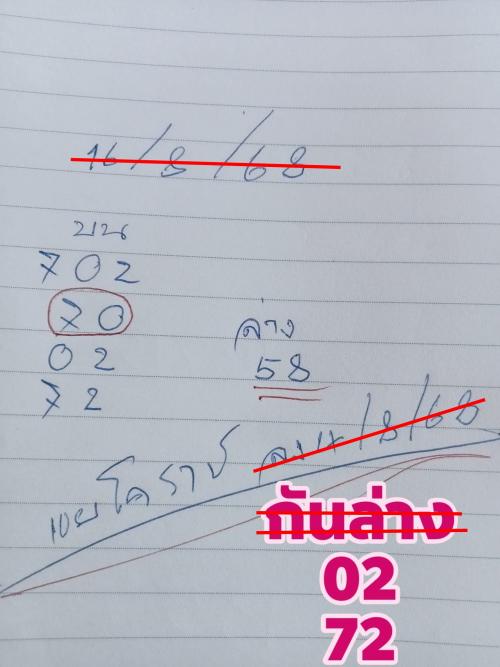 16/8/68
บน
702
70
02
72
ล่าง
58
/8/68
โคราช
กันล่าง
02
72